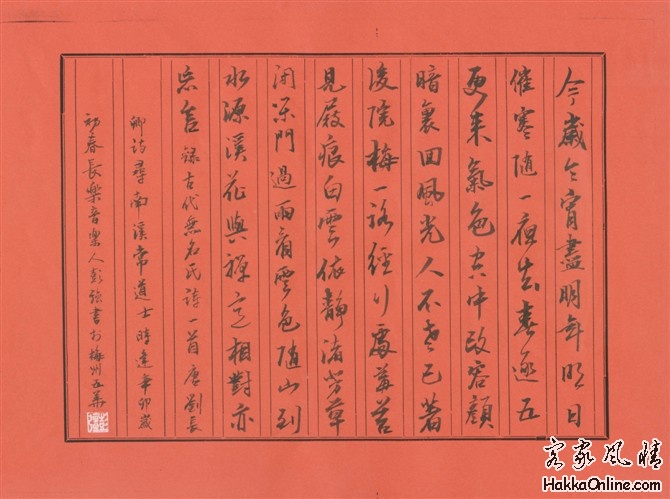 今歲今宵盡明年明日
催寒隨一夜去春逐五
更來氣色空中改容顏
暗裏回風光人不覺已著
後院梅一路經行處莓苔
見屐痕白雲依靜渚芳草
閉門過雨看色隨山到
水源溪花與禪意相對亦
忘言 錄古代無名氏詩一首唐劉長
卿詩尋南溪常道士 時逢辛卯歲
初春長樂音樂人彭書於梅州五華
客家風情
HakkaOnline.com